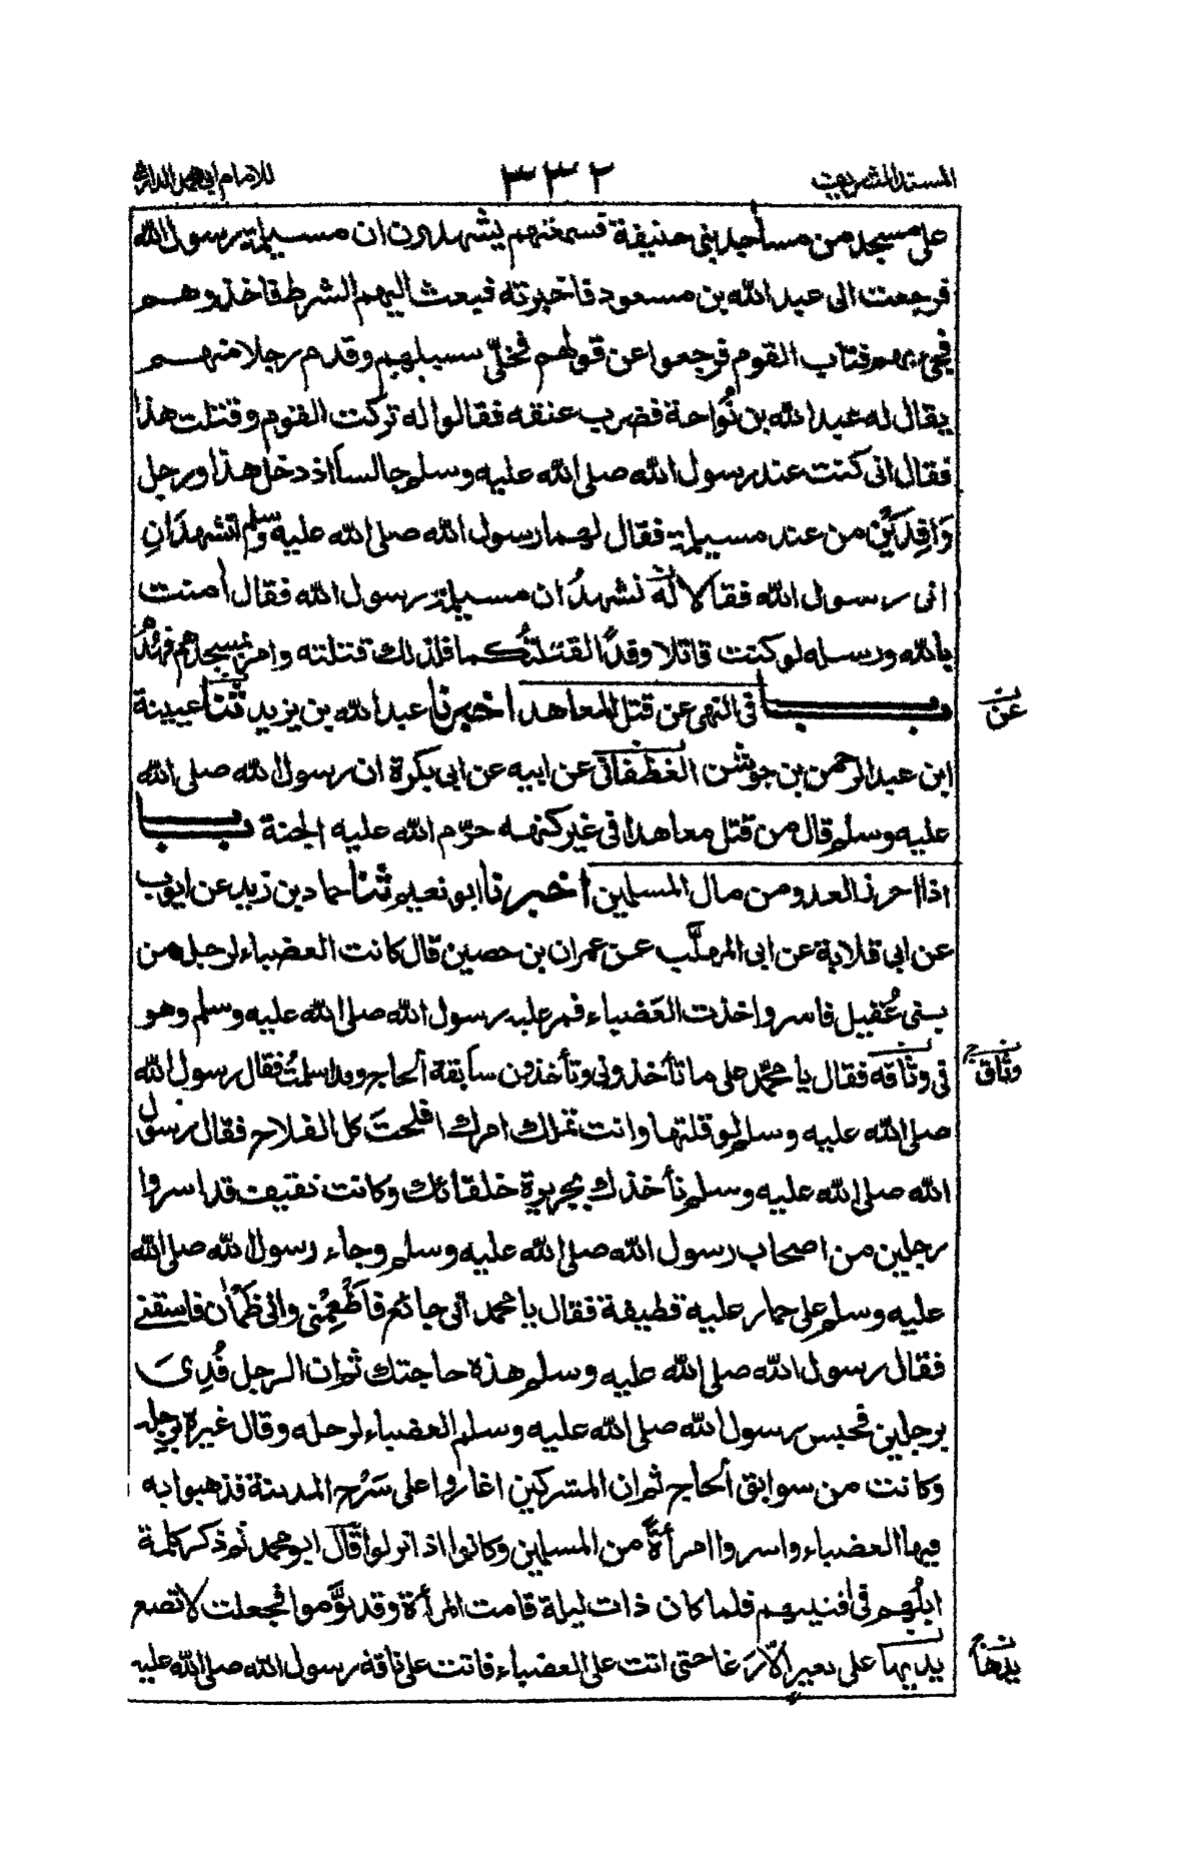 المسند الشريف ٣٣٢ للامام ابي محمد الدارمي
على مسجد من مساجد بنى حنيفة فسمعتهم يشهدون ان مسيلمة رسول الله
فرجعت الى عبد الله بن مسعود فاخبرته فبعث اليهم الشرط فاخذوهم
فجئ بهم فتاب القوم فرجعوا عن قولهم فخلّى سبيلهم وقدم رجلا منهم
يقال له عبد الله بن نُواحة فضرب عنقه فقالوا له تركت القوم وقتلت هذا
فقال انى كنت عند رسول الله صلى الله عليه وسلم جالسا اذ دخل هذا ورجل
وَافِدَيْنِ من عند مسيلمة فقال لهما رسول الله صلى الله عليه وسلم اتشهدَانِ
انى رسول الله فقالا له نشهدُ ان مسيلمة رسول الله فقال امنت
بالله ورسله لو كنت قاتلا وفدًا لقتلتُكما فلذلك قتلته وامر بمسجدهم فهُدُم
بــاب فى النهى عن قتل المعاهد اخبرنا عبد الله بن يزيد ثنا عيينة
عن
ابن عبد الرحمن بن جوشن الغطفانى عن ابيه عن ابى بكرة ان رسول الله صلى الله
عليه وسلم قال من قتل معاهدا فى غير كنهه حرّم الله عليه الجنة بــاب
اذا احرز العدو من مال المسلمين اخبرنا ابو نعيم ثنا حماد بن زيد عن ايوب
عن ابى قلابة عن ابى المهلَّب عن عمران بن حصين قال كانت العضباء لرجل من
بنى عُقيل فاسر واخذت العَضباء فمر عليه رسول الله صلى الله عليه وسلم وهو
فى وثاقه فقال يا محمّد على ما تأخذونى وتأخذون سابقة الحاج وقد اسلمتُ فقال رسول الله
وثاق
صلى الله عليه وسلم لو قلتها وانت تملك امرك افلحتَ كل الفلاح فقال رسول
الله صلى الله عليه وسلم نأخذك بجريرة حلفائك وكانت ثقيف قد اسروا
رجلين من اصحاب رسول الله صلى الله عليه وسلم وجاء رسول الله صلى الله
عليه وسلم على حمار عليه قطيفة فقال يا محمد انى جائع فاَطْعِمْنى وانى ظمْاٰن فاسقنے
فقال رسول الله صلى الله عليه وسلم هذه حاجتك ثم ان الرجل فُدِىَ
برجلين فحبس رسول الله صلى الله عليه وسلم العضباء لرحله وقال غيرة برحله
وكانت من سوابق الحاج ثم ان المشركين اغاروا على سَرْح المدينة فذهبوا به
فيها العضباء واسروا امرأةً من المسلمين وكانوا اذا نزلوا قال ابو محمد ثم ذكر كلمة
ابلُهم فى افنيتهم فلما كان ذات ليلة قامت المرأة وقد نوَّموا فجعلت لا تضع
يديها على بعير الّا رَغا حتى اتت على العضباء فاتت على ناقة رسول الله صلى الله عليه
يدها